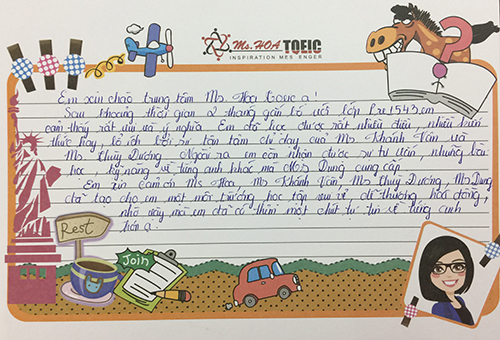 Ms. HOA TOEIC
INSPIRATION MESSENGER
Em xin chào trung tâm Ms Hoa Toeic ạ!
Sau khoảng thời gian 2 tháng gắn bó với lớp Pre1543 em
cảm thấy rất vui và ý nghĩa. Em đã học được rất nhiều điều, nhiều kiến
thức hay, bổ ích bởi sự tận tâm chỉ dạy của Ms Khánh Vân và
Ms Thuỳ Dương. Ngoài ra em còn nhận được sự tư vấn, những bài
học, kỹ năng về tiếng anh khác mà Ms Dung cung cấp.
Em xin cảm ơn Ms Hoa, Ms Khánh Vân, Ms Thuỳ Dương, Ms Dung
đã tạo cho em một môi trường học tập vui vẻ, dễ thương, hoà đồng,
nhờ vậy mà em đã có thêm một chút tự tin về tiếng anh
hơn ạ.
Rest
Join